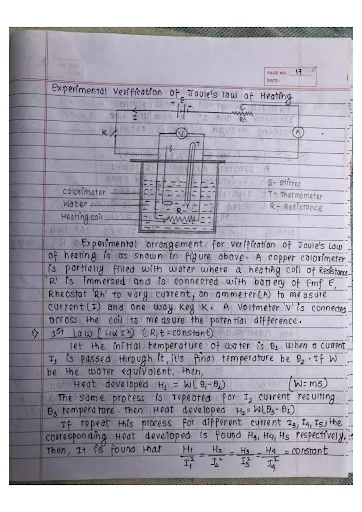 PAGE NO. 17
DATE:
Experimental Verification of Joule's law of Heating
+ E -
I
Rh
K
V
A
S
T
S - Stirrer
Calorimeter
T - Thermometer
Water
R
R - Resistance
Heating coil
Experimental arrangement for verification of Joule's Law
of heating is as shown in figure above. A copper calorimeter
is partially filled with water where a heating coil of Resistance
'R' is immersed and is connected with battery of Emf E,
Rheostat 'Rh' to vary current, an ammeter (A) to measure
current (I) and one way key K. A Voltmeter V is connected
across the coil to measure the potential difference.
1st law (H∝I²) (R,t = constant)
let the initial temperature of water is θ1. When a current
I1 is passed through it, it's final temperature be θ2. If W
be the water equivalent, then,
Heat developed H1 = W(θ1-θ2) (W=ms)
The same process is repeated for I2 current resulting
θ3 temperature. Then Heat developed H2 = W(θ3-θ2)
If repeat this process for different current I3, I4, I5, the
corresponding Heat developed is found H3, H4, H5 respectively.
Then, It is found that H1/I1² = H2/I2² = H3/I3² = H4/I4² = constant